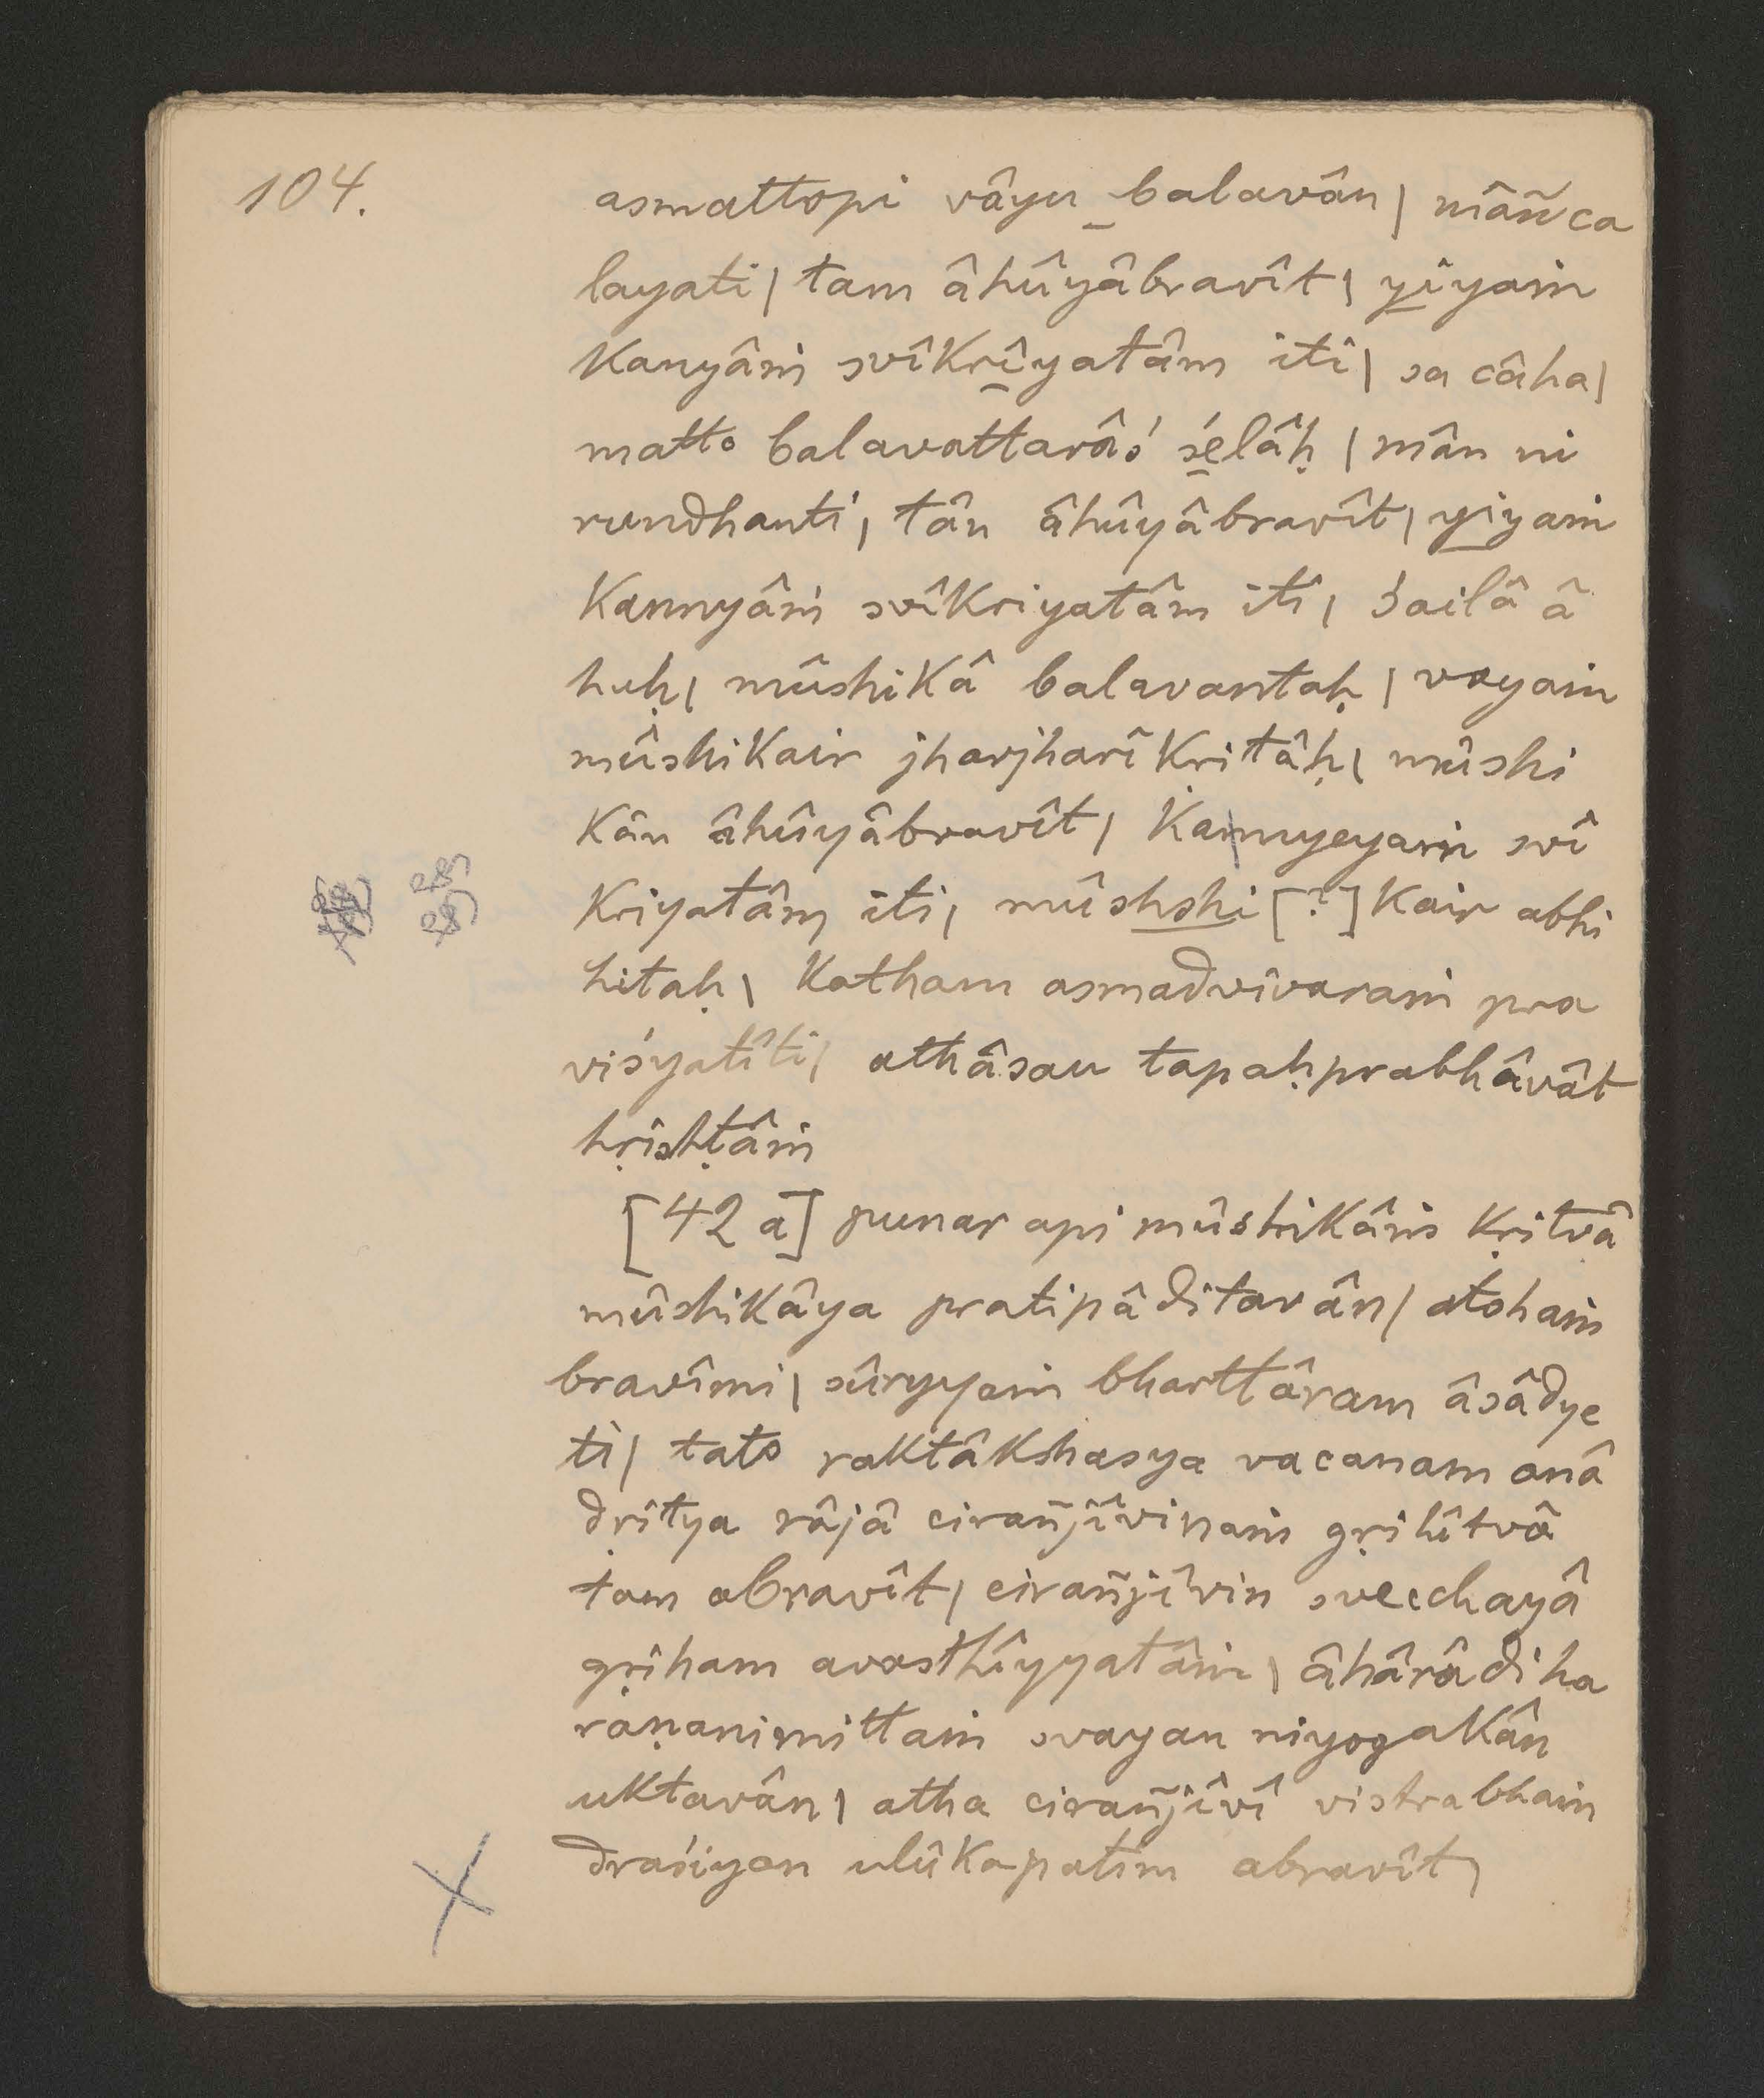 104.
asmattopi vâyu balavân | mâñ ca
layati | tam âhûyâbravît | yîyaṁ
kanyâṁ svîkrîyatâm iti | sa câha |
matto balavattarâś śelâḥ | mân ni
rundhanti | tân âhûyâbravît | yiyaṁ
kannyâṁ svîkriyatâm iti | śailâ â
huḥ | mûshikâ balavantaḥ | vayaṁ
mûshikair jharjharîkṛitâḥ | mûshi
kân âhûyâbravît | kannyeyaṁ svî
kriyatâm iti | mûshshi [?] kair abhi
hitaḥ | katham asmadvivaraṁ pra
viśyatîti | athâsau tapaḥprabhâvât
hṛishṭâṁ
[42 a] punar api mûshikâṁ kṛitvâ
mûshikâya pratipâditavân | atohaṁ
bravîmi | sûryyaṁ bharttâram âsâdye
ti | tato raktâkshasya vacanam anâ
dṛitya râjâ cirañjîvinaṁ gṛihîtvâ
tam abravît | cirañjîvin svecchayâ
gṛiham avasthîyyatâṁ | âhârâdiha
raṇanimittaṁ svayan niyogakân
uktavân | atha cirañjîvî vistrabhaṁ
draśiyan ulûkapatim abravît |